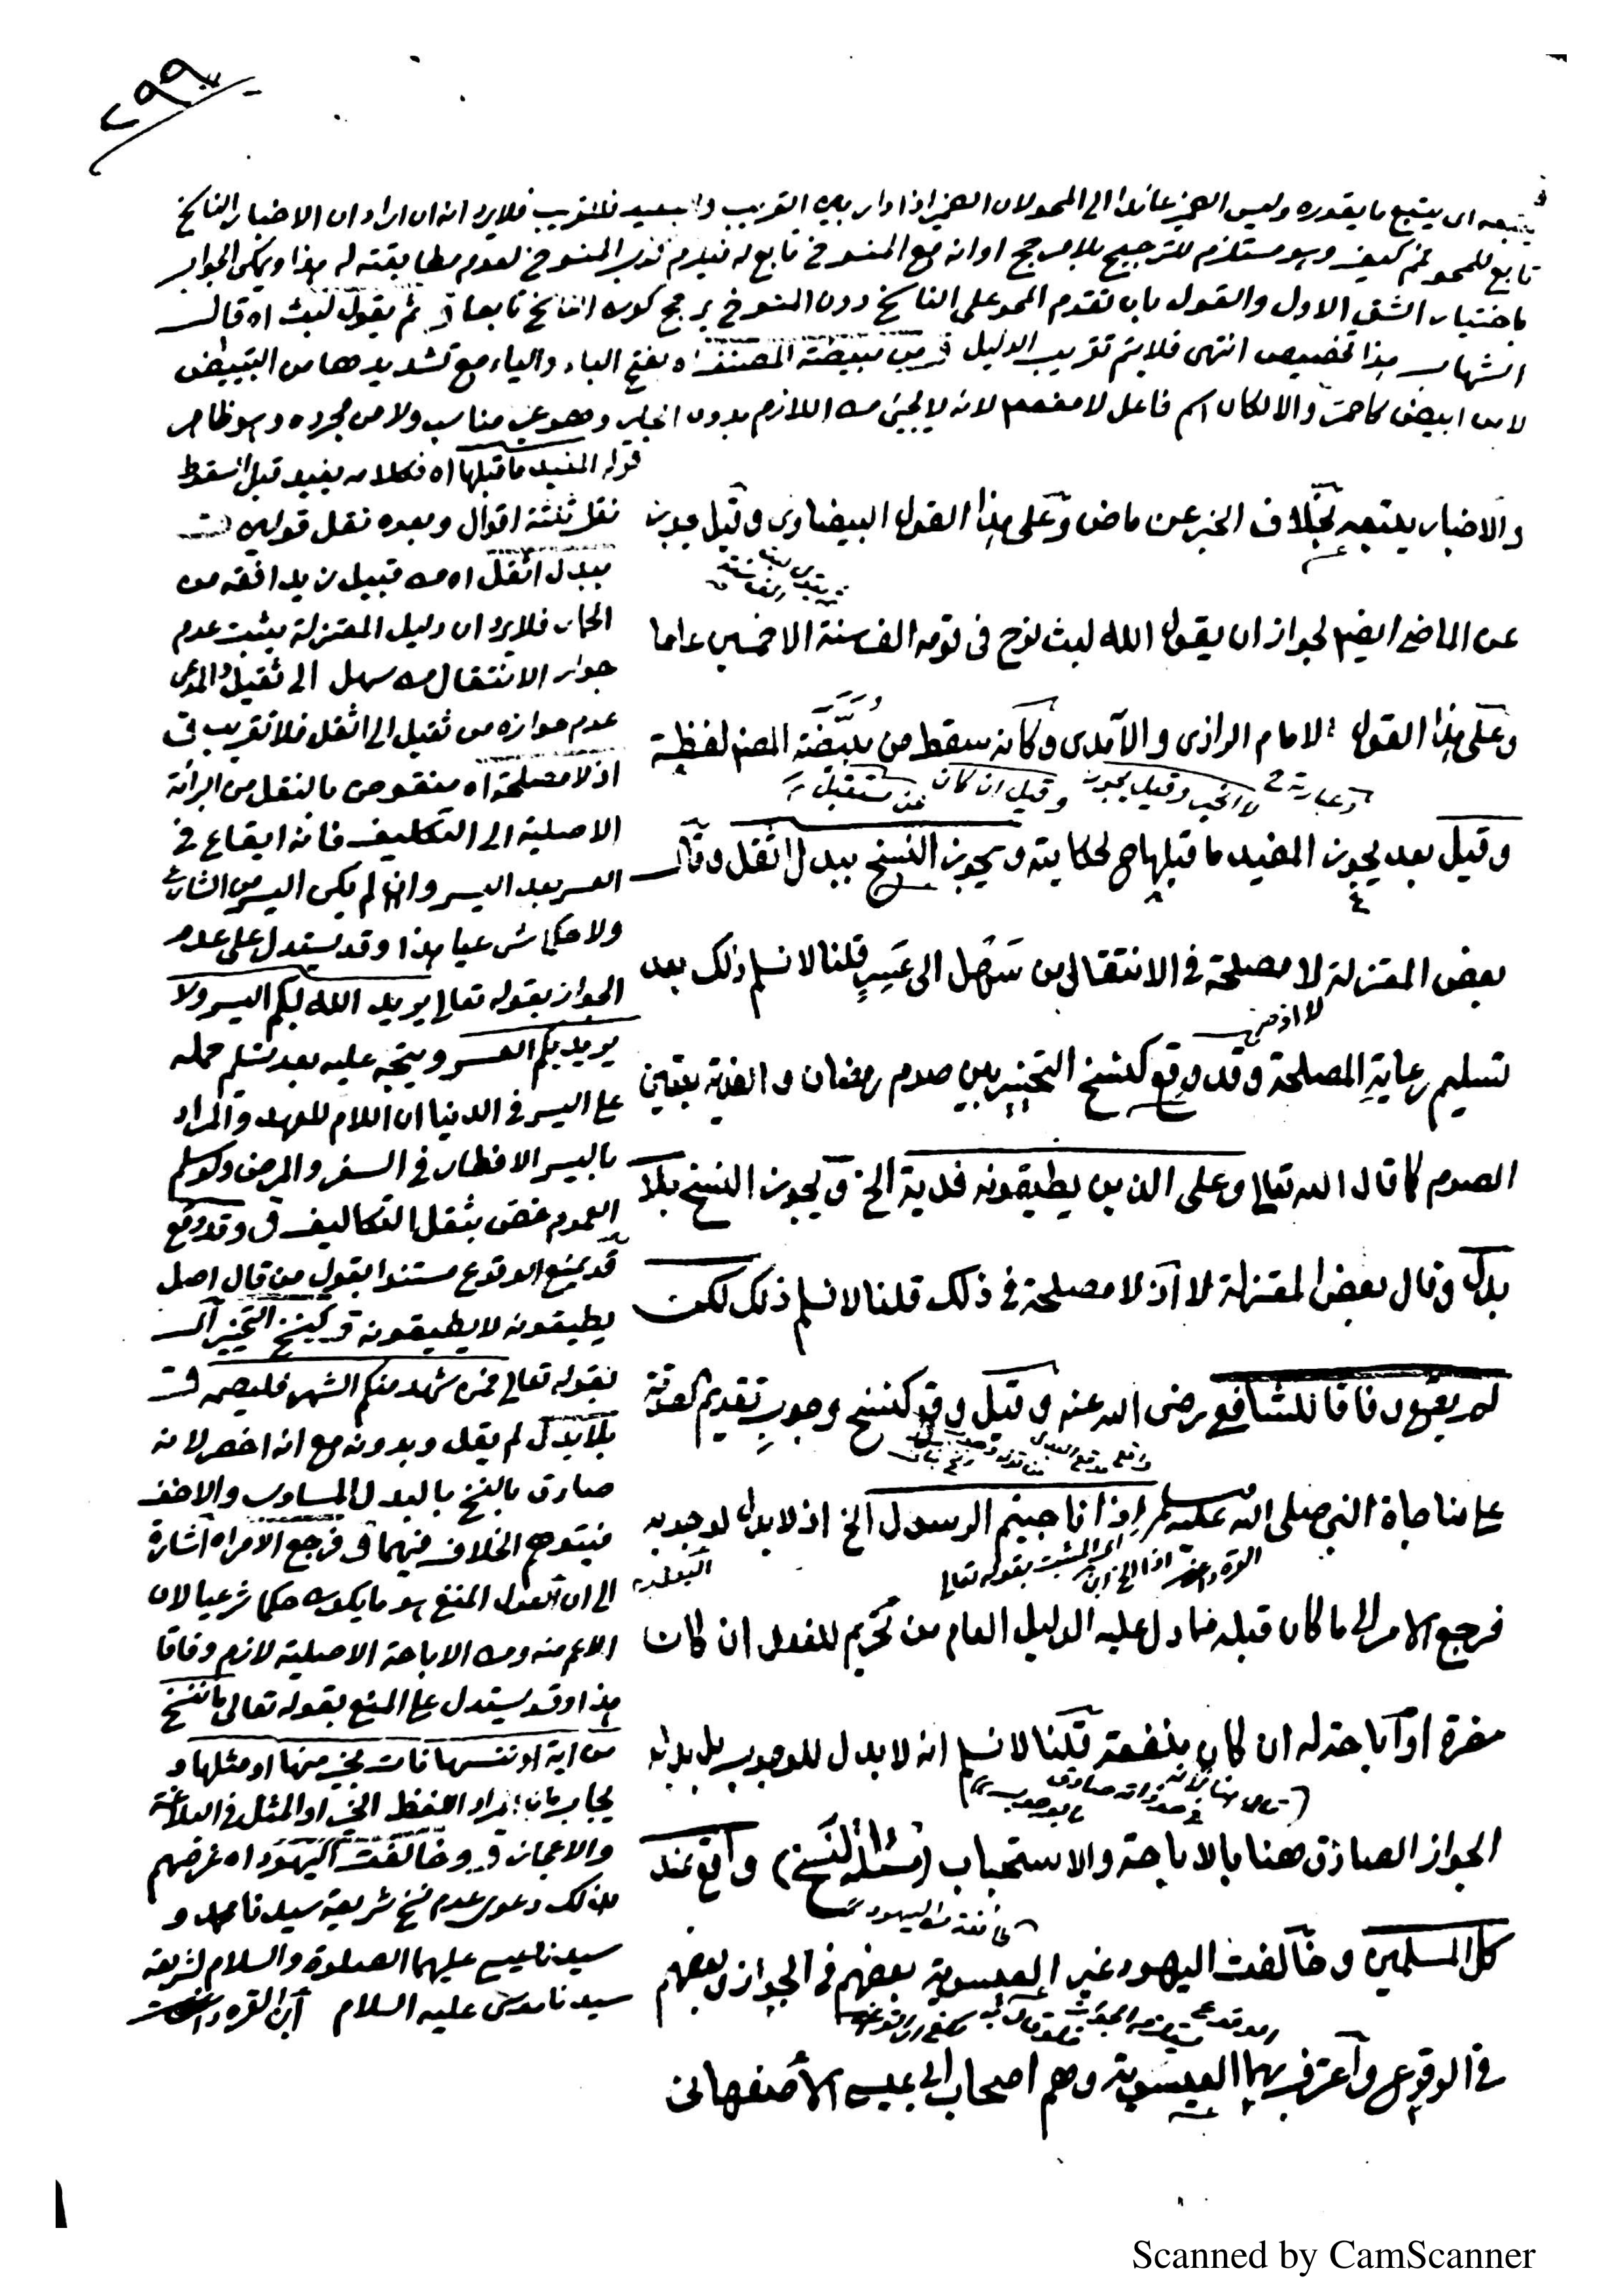 ٢٩٩
يتبعه اى يتبع ما يقدره وليس الضمير عائدا الى المحو لان الضمير اذا دار بين القريب والبعيد فللقريب فلا يرد انه ان اراد ان الاخبار الناسخ
تابع للمحو فمنع كيف وهو مستلزم للترجيح بلا مرجح او انه مع المنسوخ تابع له فيلزم كذب المنسوخ لعدم مطابقته له هذا ويمكن الجواب
باختيار الشق الاول والقول بان تقدم المحو على الناسخ دون المنسوخ يرجح كون الناسخ تابعا ثم يقول لبث اه قال
الشهاب هذا تخصيص انتهى فلا يتم تقريب الدليل من مبيضة المصنف اه بفتح الباء والياء مع تشديدها من التبييض
لا من ابيض كاحمر والا لكان اسم فاعل لا مفعول لانه لا يجيئ من اللازم بدون الجار وهو غير مناسب ولا من مجرده وهو ظاهر
والاخبار يتبعه بخلاف الخبر عن ماض وعلى هذا القول البيضاوى وقيل يجوز
عن الماضى ايضا لجواز ان يقول الله لبث نوح فى قومه الف سنة الا خمسين عاما
وعلى هذا القول الامام الرازى والآمدى وكأنه سقط من مبيضة المصنف لفظة
وقيل بعد يجوز المفيد ما قبلها لحكايته ويجوز النسخ ببدل اثقل وقال
بعض المعتزلة لا مصلحة فى الانتقال من سهل الى عسير قلنا لا نسلم ذلك بعد
تسليم رعاية المصلحة وقد وقع كنسخ التخيير بين صوم رمضان والفدية بتعين
الصوم كما قال الله تعالى وعلى الذين يطيقونه فدية الخ ويجوز النسخ بلا
بدل وقال بعض المعتزلة لا اذ لا مصلحة فى ذلك قلنا لا نسلم ذلك لكن
لم يقع وفاقا للشافعى رضى الله عنه وقيل وقع كنسخ وجوب تقديم الصدقة
على مناجاة النبى صلى الله عليه وسلم اذا ناجيتم الرسول الخ اذ لا بدل لوجوبه
فرجع الامر الى ما كان قبله مما دل عليه الدليل العام من تحريم للفعل ان كان
مضرة او اباحة له ان كان منفعة قلنا لا نسلم انه لا بدل للوجوب بل بدله
الجواز الصادق هنا بالاباحة والاستحباب (مسئلة النسخ) واقع عند
كل المسلمين وخالفت اليهود غير العيسوية بعضهم فى الجواز وبعضهم
فى الوقوع واعترف بهما العيسوية وهم اصحاب ابى عيسى الأصفهانى
قوله المفيد ما قبلها اه فكلامه يفيد قبل السقط
نقل ثلثة اقوال وبعده نقل قولين
ببدل اثقل اه من قبيل زيد افقه من
الحمار فلا يرد ان دليل المعتزلة يثبت عدم
جواز الانتقال من سهل الى ثقيل والمدعى
عدم جوازه من ثقيل الى اثقل فلا تقريب
اذ لا مصلحة اه منقوض بالنقل من البرائة
الاصلية الى التكليف فانه ايقاع فى
العسر بعد اليسر وان لم يكن اليسر من الشارع
ولا حكما شرعيا هذا وقد يستدل على عدم
الجواز بقوله تعالى يريد الله بكم اليسر ولا
يريد بكم العسر ويتجه عليه بعد تسليم حمله
على اليسر فى الدنيا ان اللام للعهد والمراد
باليسر الافطار فى السفر والمرض ولو سلم
العموم خص بثقل التكاليف وقد وقع
قد يمنع الوقوع مستندا بقول من قال اصل
يطيقونه لا يطيقونه كنسخ التخيير
بقوله تعالى فمن شهد منكم الشهر فليصمه
بلا بدل لم يقل وبدونه مع انه اخصر لانه
صادق بالنسخ بالبدل المساوى والاخف
فيتوهم الخلاف فيهما فرجع الامر اه اشارة
الى ان البدل المنفى هو ما يكون حكما شرعيا لان
الاعم منه ومن الاباحة الاصلية لازم وفاقا
هذا وقد يستدل على المنع بقوله تعالى ما ننسخ
من آية او ننسها نات بخير منها او مثلها و
يجاب بان المراد اللفظ الخير او المثل فى البلاغة
والاعجاز وخالفت اليهود اه غرضهم
من ذلك دعوى عدم نسخ شريعة سيدنا محمد و
سيدنا عيسى عليهما الصلوة والسلام لشريعة
سيدنا موسى عليه السلام ابن القره داغى
Scanned by CamScanner